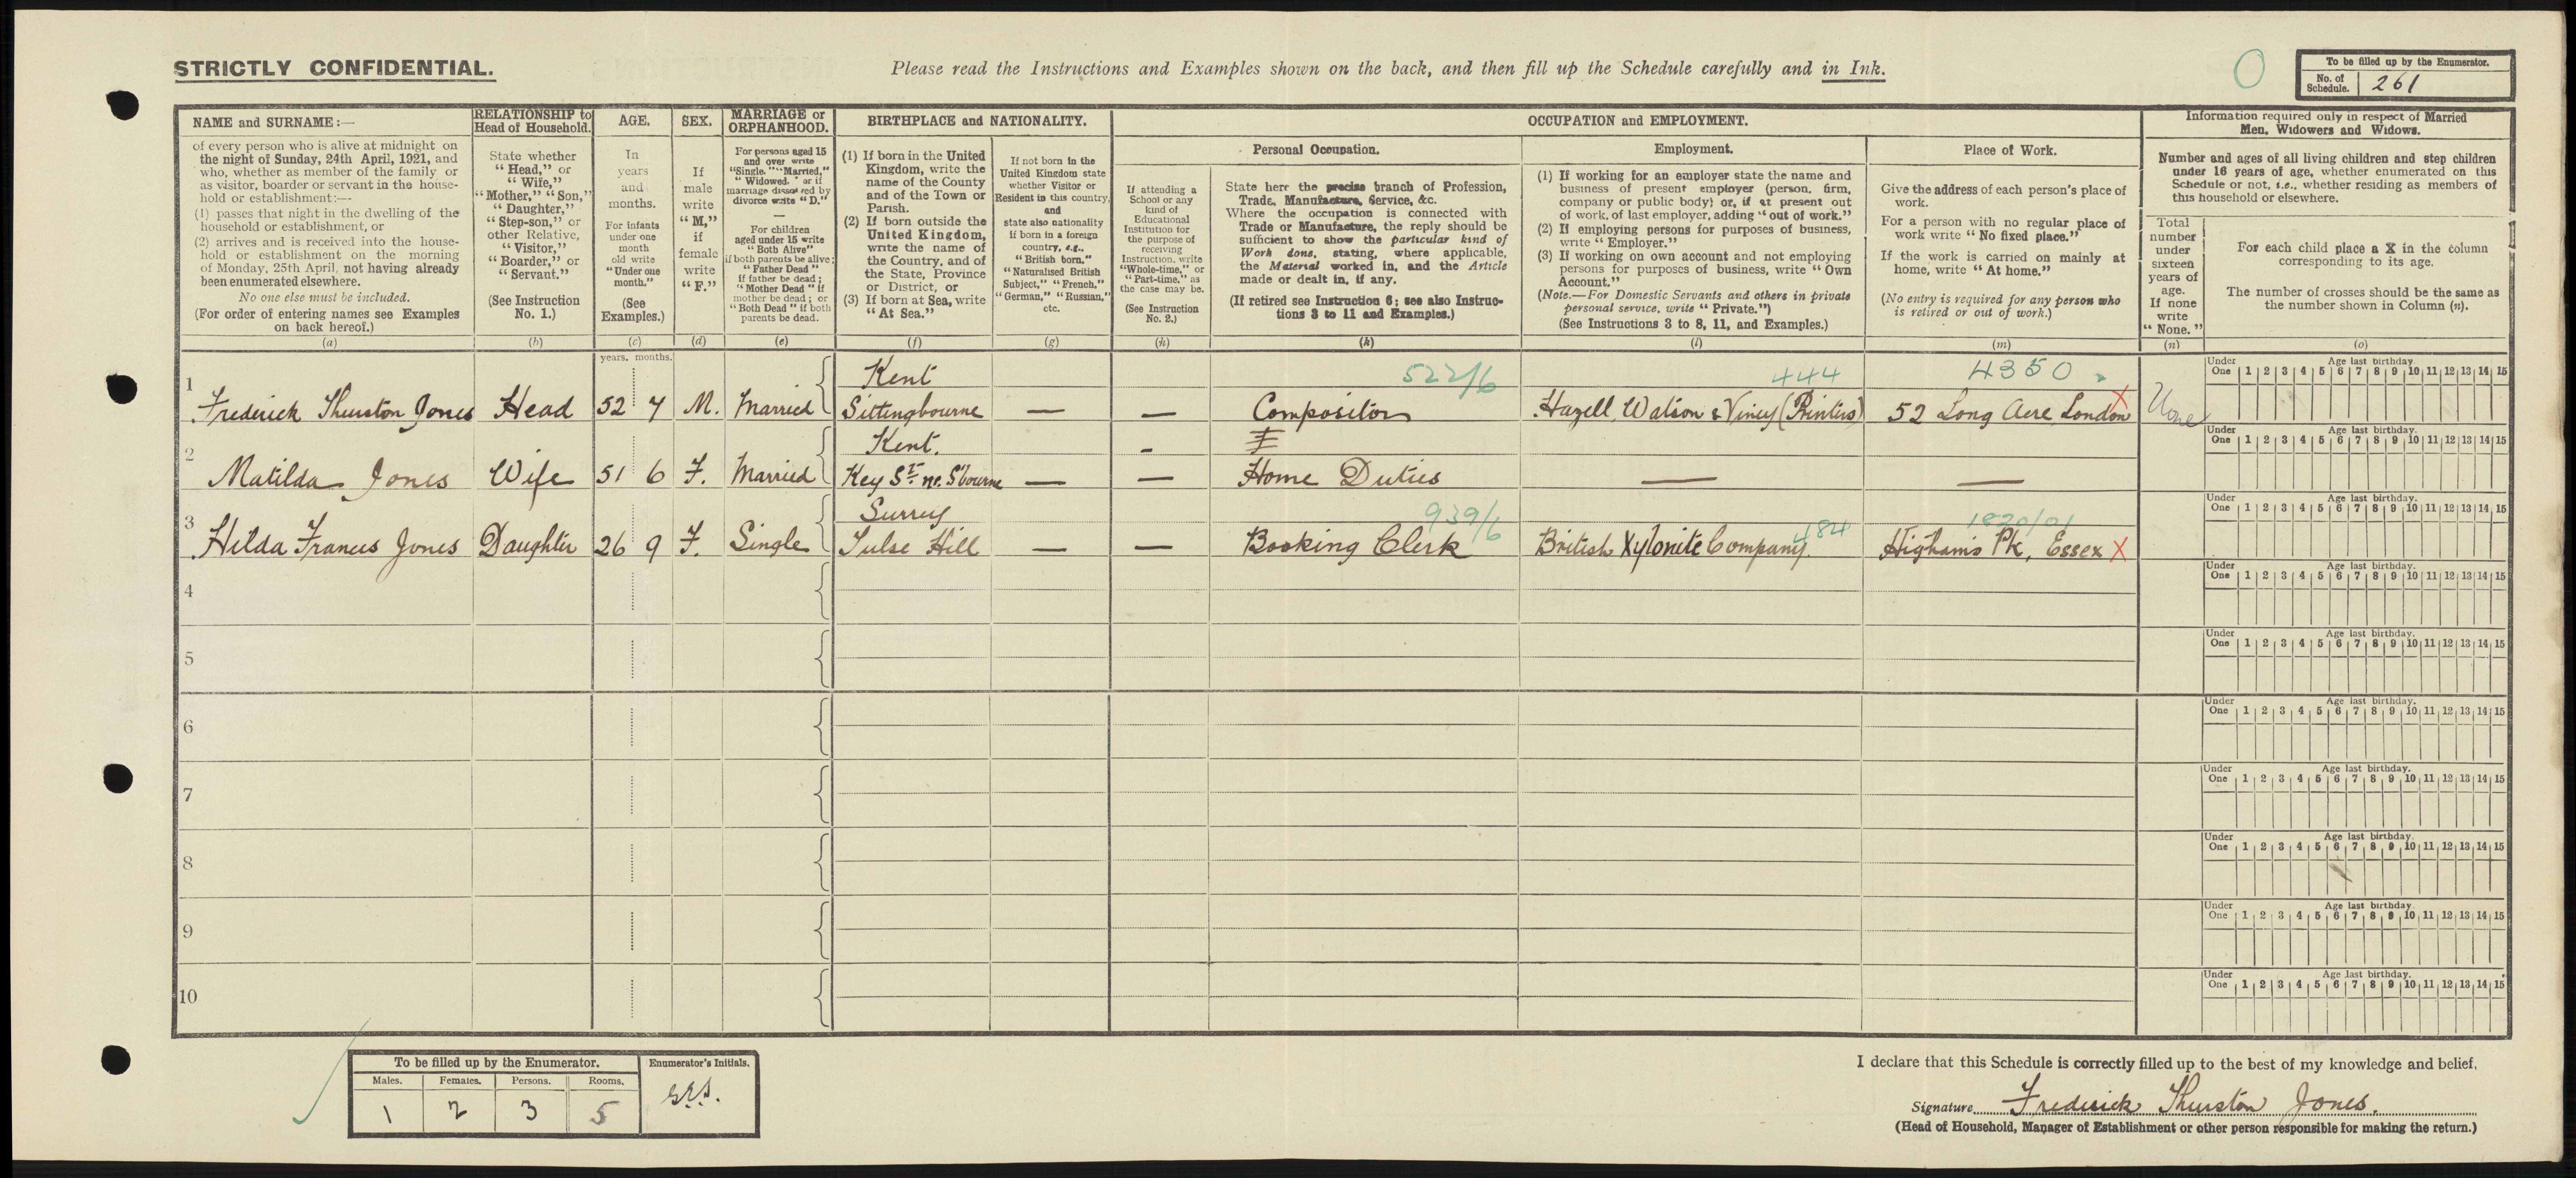 STRICTLY CONFIDENTIAL.
Please read the Instructions and Examples shown on the back, and then fill up the Schedule carefully and in Ink.
To be filled up by the Enumerator.
No. of Schedule. 261
NAME and SURNAME:—
of every person who is alive at midnight on
the night of Sunday, 24th April, 1921, and
who, whether as member of the family or
as visitor, boarder or servant in the house-
hold or establishment:—
(1) passes that night in the dwelling of the
household or establishment, or
(2) arrives and is received into the house-
hold or establishment on the morning
of Monday, 25th April, not having already
been enumerated elsewhere.
No one else must be included.
(For order of entering names see Examples
on back hereof.)
(a)
RELATIONSHIP to
Head of Household.
State whether
"Head," or
"Wife,"
"Mother," "Son,"
"Daughter,"
"Step-son," or
other Relative,
"Visitor,"
"Boarder," or
"Servant."
(See Instruction
No. 1.)
(b)
AGE.
In
years
and
months.
For infants
under one
month
old write
"Under one
month."
(See
Examples.)
(c)
SEX.
If
male
write
"M,"
if
female
write
"F."
(d)
MARRIAGE or
ORPHANHOOD.
For persons aged 15
and over write
"Single," "Married,"
"Widowed," or if
marriage dissolved by
divorce write "D."
—
For children
aged under 15 write
"Both Alive"
if both parents be alive;
"Father Dead"
if father be dead;
"Mother Dead" if
mother be dead; or
"Both Dead" if both
parents be dead.
(e)
BIRTHPLACE and NATIONALITY.
(1) If born in the United
Kingdom, write the
name of the County
and of the Town or
Parish.
(2) If born outside the
United Kingdom,
write the name of
the Country, and of
the State, Province
or District, or
(3) If born at Sea, write
"At Sea."
(f)
If not born in the
United Kingdom state
whether Visitor or
Resident in this country,
and
state also nationality
if born in a foreign
country, e.g.,
"British born,"
"Naturalised British
Subject," "French,"
"German," "Russian,"
etc.
(g)
OCCUPATION and EMPLOYMENT.
If attending a
School or any
kind of
Educational
Institution for
the purpose of
receiving
Instruction, write
"Whole-time," or
"Part-time," as
the case may be.
(See Instruction
No. 2.)
(h)
Personal Occupation.
State here the precise branch of Profession,
Trade, Manufacture, Service, &c.
Where the occupation is connected with
Trade or Manufacture, the reply should be
sufficient to show the particular kind of
Work done, stating, where applicable,
the Material worked in, and the Article
made or dealt in, if any.
(If retired see Instruction 6; see also Instruc-
tions 3 to 11 and Examples.)
(k)
Employment.
(1) If working for an employer state the name and
business of present employer (person, firm,
company or public body) or, if at present out
of work, of last employer, adding "out of work."
(2) If employing persons for purposes of business,
write "Employer."
(3) If working on own account and not employing
persons for purposes of business, write "Own
Account."
(Note.—For Domestic Servants and others in private
personal service, write "Private.")
(See Instructions 3 to 8, 11, and Examples.)
(l)
Place of Work.
Give the address of each person's place of
work.
For a person with no regular place of
work write "No fixed place."
If the work is carried on mainly at
home, write "At home."
(No entry is required for any person who
is retired or out of work.)
(m)
Information required only in respect of Married
Men, Widowers and Widows.
Number and ages of all living children and step children
under 16 years of age, whether enumerated on this
Schedule or not, i.e., whether residing as members of
this household or elsewhere.
Total
number
under
sixteen
years of
age.
If none
write
"None."
(n)
For each child place a X in the column
corresponding to its age.
The number of crosses should be the same as
the number shown in Column (n).
(o)
years. months.
Under One Age last birthday. 1 2 3 4 5 6 7 8 9 10 11 12 13 14 15
Kent 522/6 444 4350
1 Frederick Thurston Jones Head 52 7 M. Married Sittingbourne — — Compositor Hazell, Watson & Viney (Printers) 52 Long Acre London X None
Under One Age last birthday. 1 2 3 4 5 6 7 8 9 10 11 12 13 14 15
Kent.
2 Matilda Jones Wife 51 6 F. Married Key St. nr. S'bourne — — Home Duties — —
Under One Age last birthday. 1 2 3 4 5 6 7 8 9 10 11 12 13 14 15
Surrey 939/6 484 1820/01
3 Hilda Frances Jones Daughter 26 9 F. Single Tulse Hill — — Booking Clerk British Xylonite Company. Higham's Pk, Essex X
Under One Age last birthday. 1 2 3 4 5 6 7 8 9 10 11 12 13 14 15
4
Under One Age last birthday. 1 2 3 4 5 6 7 8 9 10 11 12 13 14 15
5
Under One Age last birthday. 1 2 3 4 5 6 7 8 9 10 11 12 13 14 15
6
Under One Age last birthday. 1 2 3 4 5 6 7 8 9 10 11 12 13 14 15
7
Under One Age last birthday. 1 2 3 4 5 6 7 8 9 10 11 12 13 14 15
8
Under One Age last birthday. 1 2 3 4 5 6 7 8 9 10 11 12 13 14 15
9
Under One Age last birthday. 1 2 3 4 5 6 7 8 9 10 11 12 13 14 15
10
To be filled up by the Enumerator.
Males. Females. Persons. Rooms.
1 2 3 5
Enumerator's Initials.
I declare that this Schedule is correctly filled up to the best of my knowledge and belief.
Signature Frederick Thurston Jones.
(Head of Household, Manager of Establishment or other person responsible for making the return.)